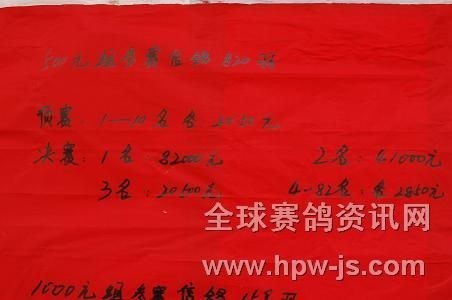 500元组参赛信鸽820羽
预赛：1—10名各：2050元
决赛：1名：82000元 2名：41000元
3名：20500元 4-82名：各2850元
全球赛鸽资讯网
www.hpw-js.com
1000元组参赛信鸽